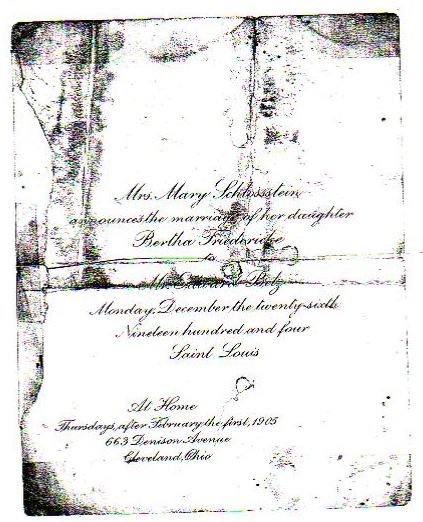 Mrs. Mary Schlossstein
announces the marriage of her daughter
Bertha Friedericke
Mr.
Monday, December the twenty-sixth
Nineteen hundred and four
Saint Louis
At Home
Thursdays, after February the first, 1905
663 Denison Avenue
Cleveland, Ohio